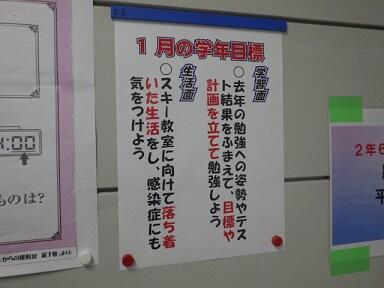 2-2
1月の学年目標
学習面
○去年の勉強への姿勢やテス
ト結果をふまえて、目標や
計画を立てて勉強しよう
生活面
○スキー教室に向けて落ち着
いた生活をし、感染症にも
気をつけよう
:00
ものは?
からの挑戦状 第1巻」より
2年6
平